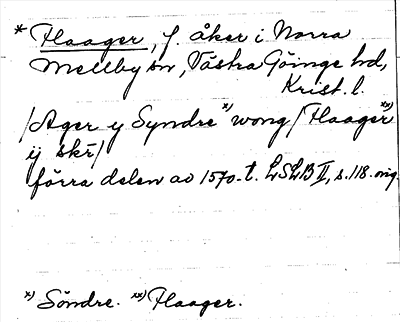 * Haager, f. åker i Norra
Mellby sn, Västra Göinge hd,
Krist. l.
/Ager y Syndre x) wong / Haager xx)
ij skr/
förra delen av 1570-t. LSLB II, s. 118. orig.
x) Söndre. xx) Haager.